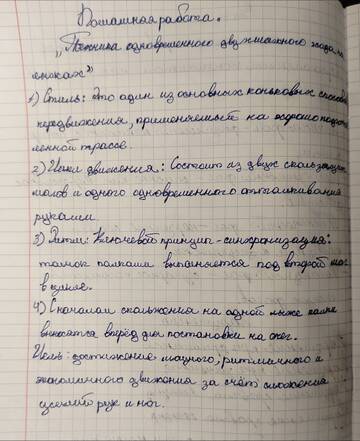 Домашняя работа.
„Техника одновременного двухшажного хода на
лыжах"
1) Стиль: Это один из основных коньковых способов
передвижения, применяемый на хорошо подго
ленной трассе.
2) Цикл движения: Состоит из двух скользящих
шагов и одного одновременного отталкивания
руками
3) Ритм: Ключевой принцип - синхронизация:
толчок палками выполняется под второй шаг
в цикле.
4) С началом скольжения на одной лыже палки
выносятся вперёд для постановки на снег.
Цель: достижение мощного, ритмичного и
экономичного движения за счёт сложения
усилий рук и ног.